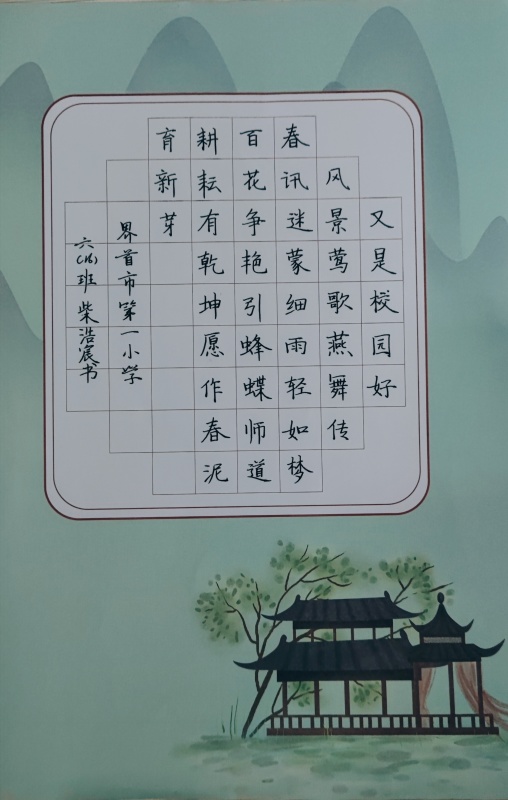 又是校园好
风景莺歌燕舞传
春讯迷蒙细雨轻如梦
百花争艳引蜂蝶师道
耕耘有乾坤愿作春泥
育新芽
界首市第一小学
六(16)班柴浩宸书